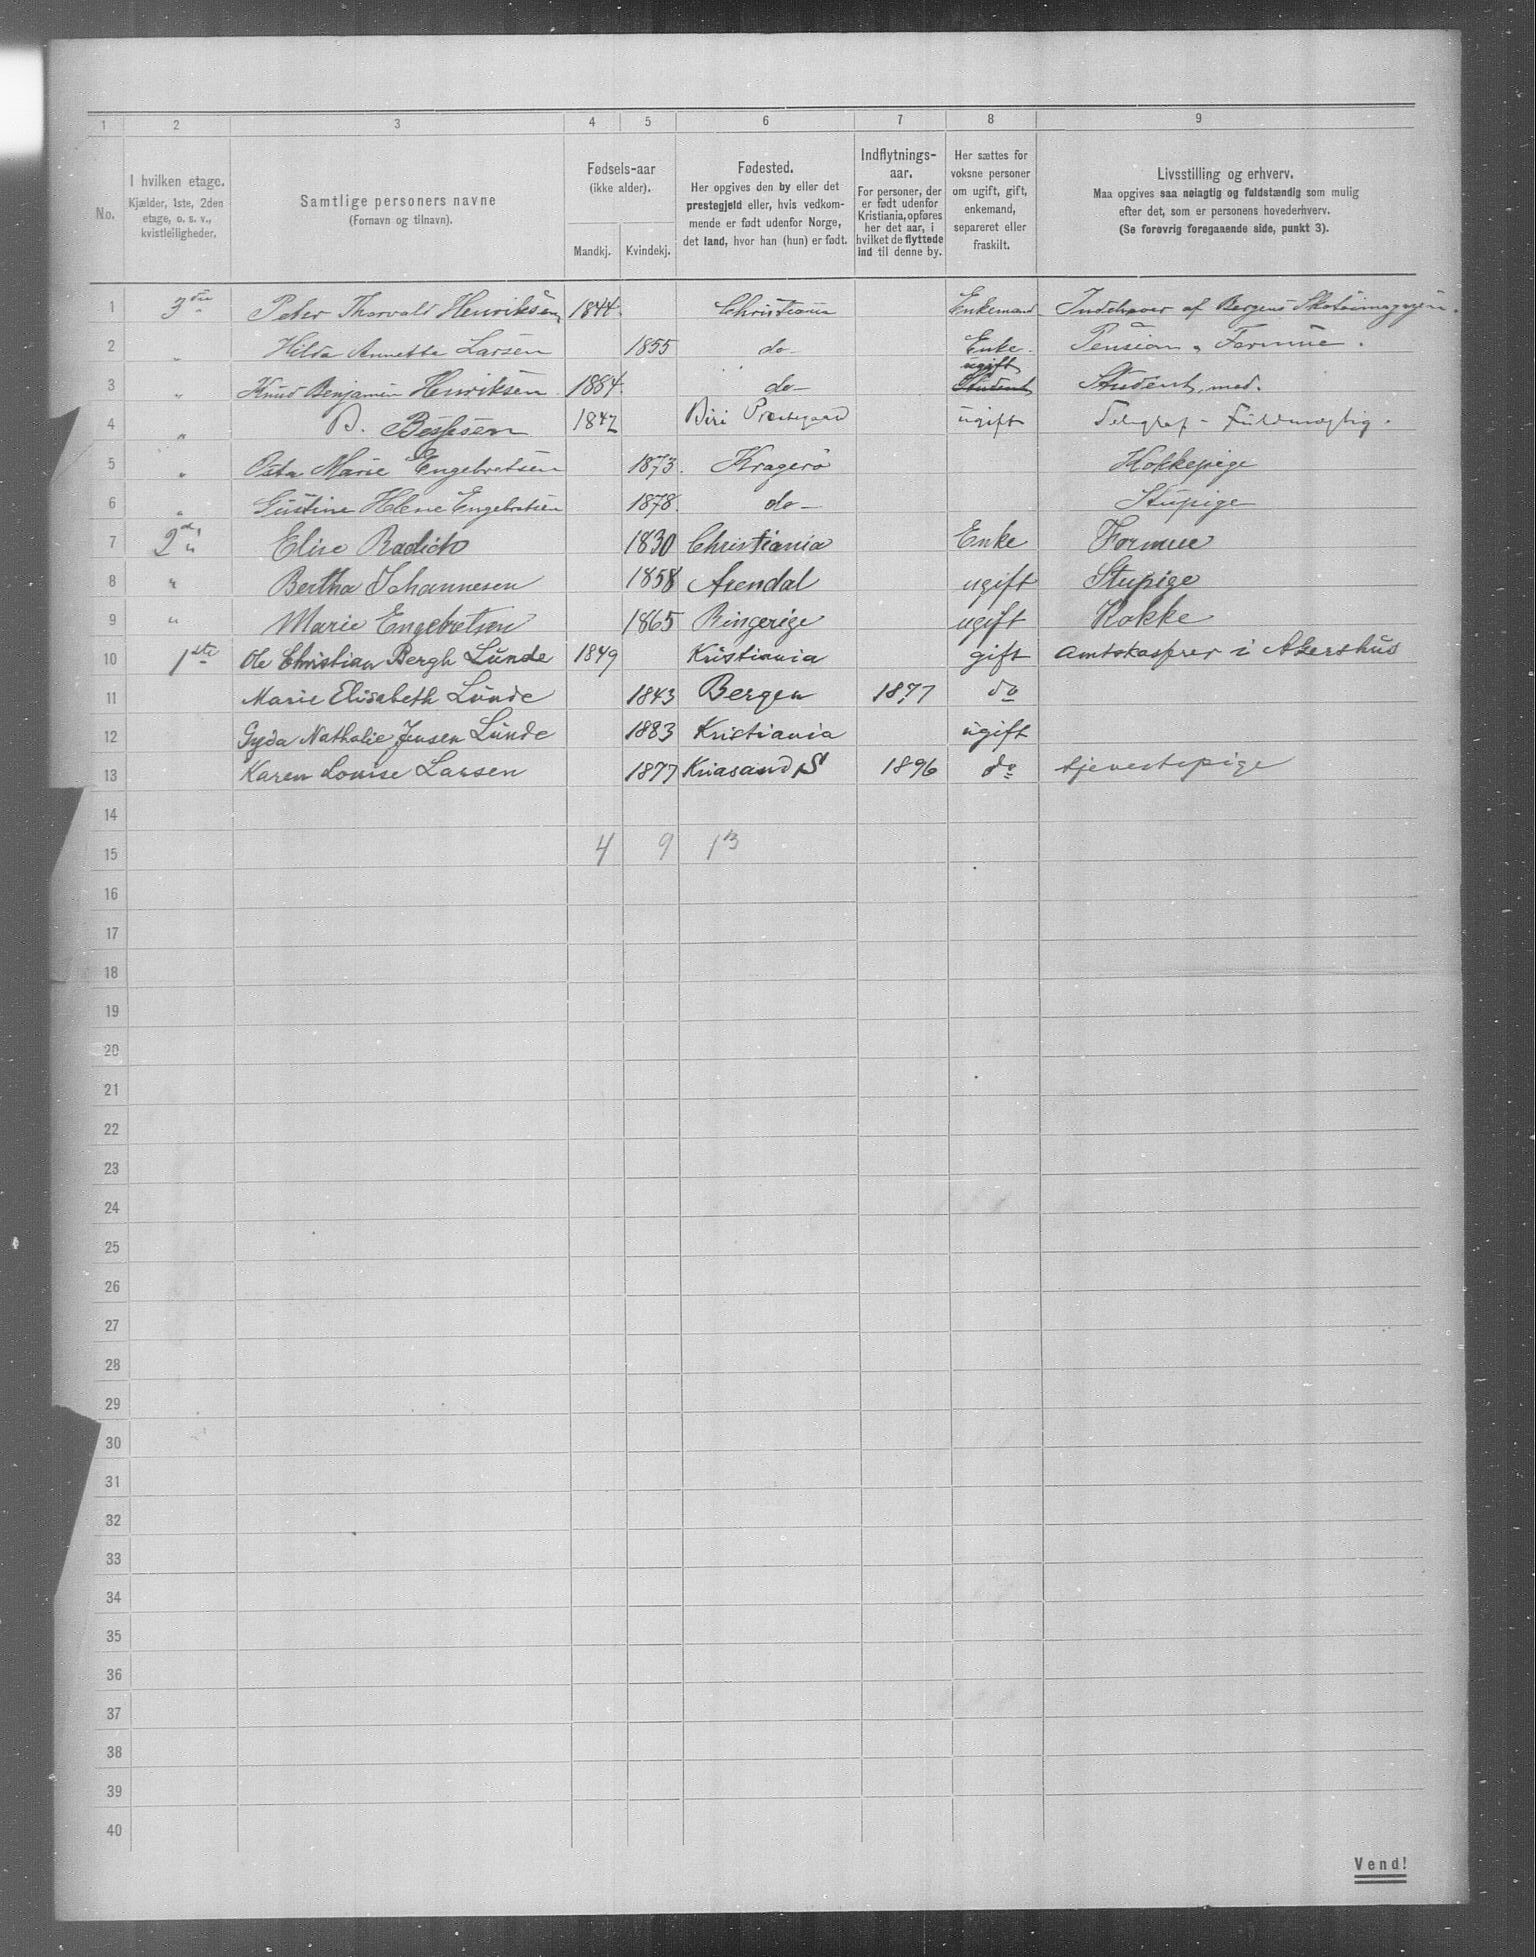 1 2 3 4 5 6 7 8 9
No.
I hvilken etage.
Kjælder, 1ste, 2den
etage, o. s. v.,
kvistleiligheder.
Samtlige personers navne
(Fornavn og tilnavn).
Fødsels-aar
(ikke alder).
Mandkj. Kvindekj.
Fødested.
Her opgives den by eller det
prestegjeld eller, hvis vedkom-
mende er født udenfor Norge,
det land, hvor han (hun) er født.
Indflytnings-
aar.
For personer, der
er født udenfor
Kristiania, opføres
her det aar, i
hvilket de flyttede
ind til denne by.
Her sættes for
voksne personer
om ugift, gift,
enkemand,
separeret eller
fraskilt.
Livsstilling og erhverv.
Maa opgives saa nøiagtig og fuldstændig som mulig
efter det, som er personens hovederhverv.
(Se forøvrig foregaaende side, punkt 3).
1 3die Peter Thorvald Henriksen 1844. Christiania Enkemand Indehaver af Bergens Skotøimagazin.
2 " Hilda Annette Larsen 1855 do- Enke. Pension, Formue.
3 " Knud Benjamin Henriksen 1884. do- ugift Student Student, med.
4 " B. Bessesen 1842 Biri Præstegaard ugift Telegraf-Fuldmægtig.
5 " Marie Engebretsen 1873. Kragerø Kokkepige
6 " Gustine Helene Engebretsen 1878. do- Stupige
7 2d " Elise Radich 1830 Christiania Enke Formue
8 " Bertha Johannesen 1858 Arendal ugift Stupige
9 " Marie Engebretsen 1865 Ringerige ugift Kokke
10 1ste Ole Christian Bergh Lunde 1849 Kristiania gift Amtskasserer i Akershus
11 Marie Elisabeth Lunde 1843 Bergen 1877 do
12 Gyda Nathalie Jensen Lunde 1883 Kristiania ugift
13 Karen Louise Larsen 1877 Kriasand S 1896 do tjenestepige
14
15 4 9 13
16
17
18
19
20
21
22
23
24
25
26
27
28
29
30
31
32
33
34
35
36
37
38
39
40
Vend!